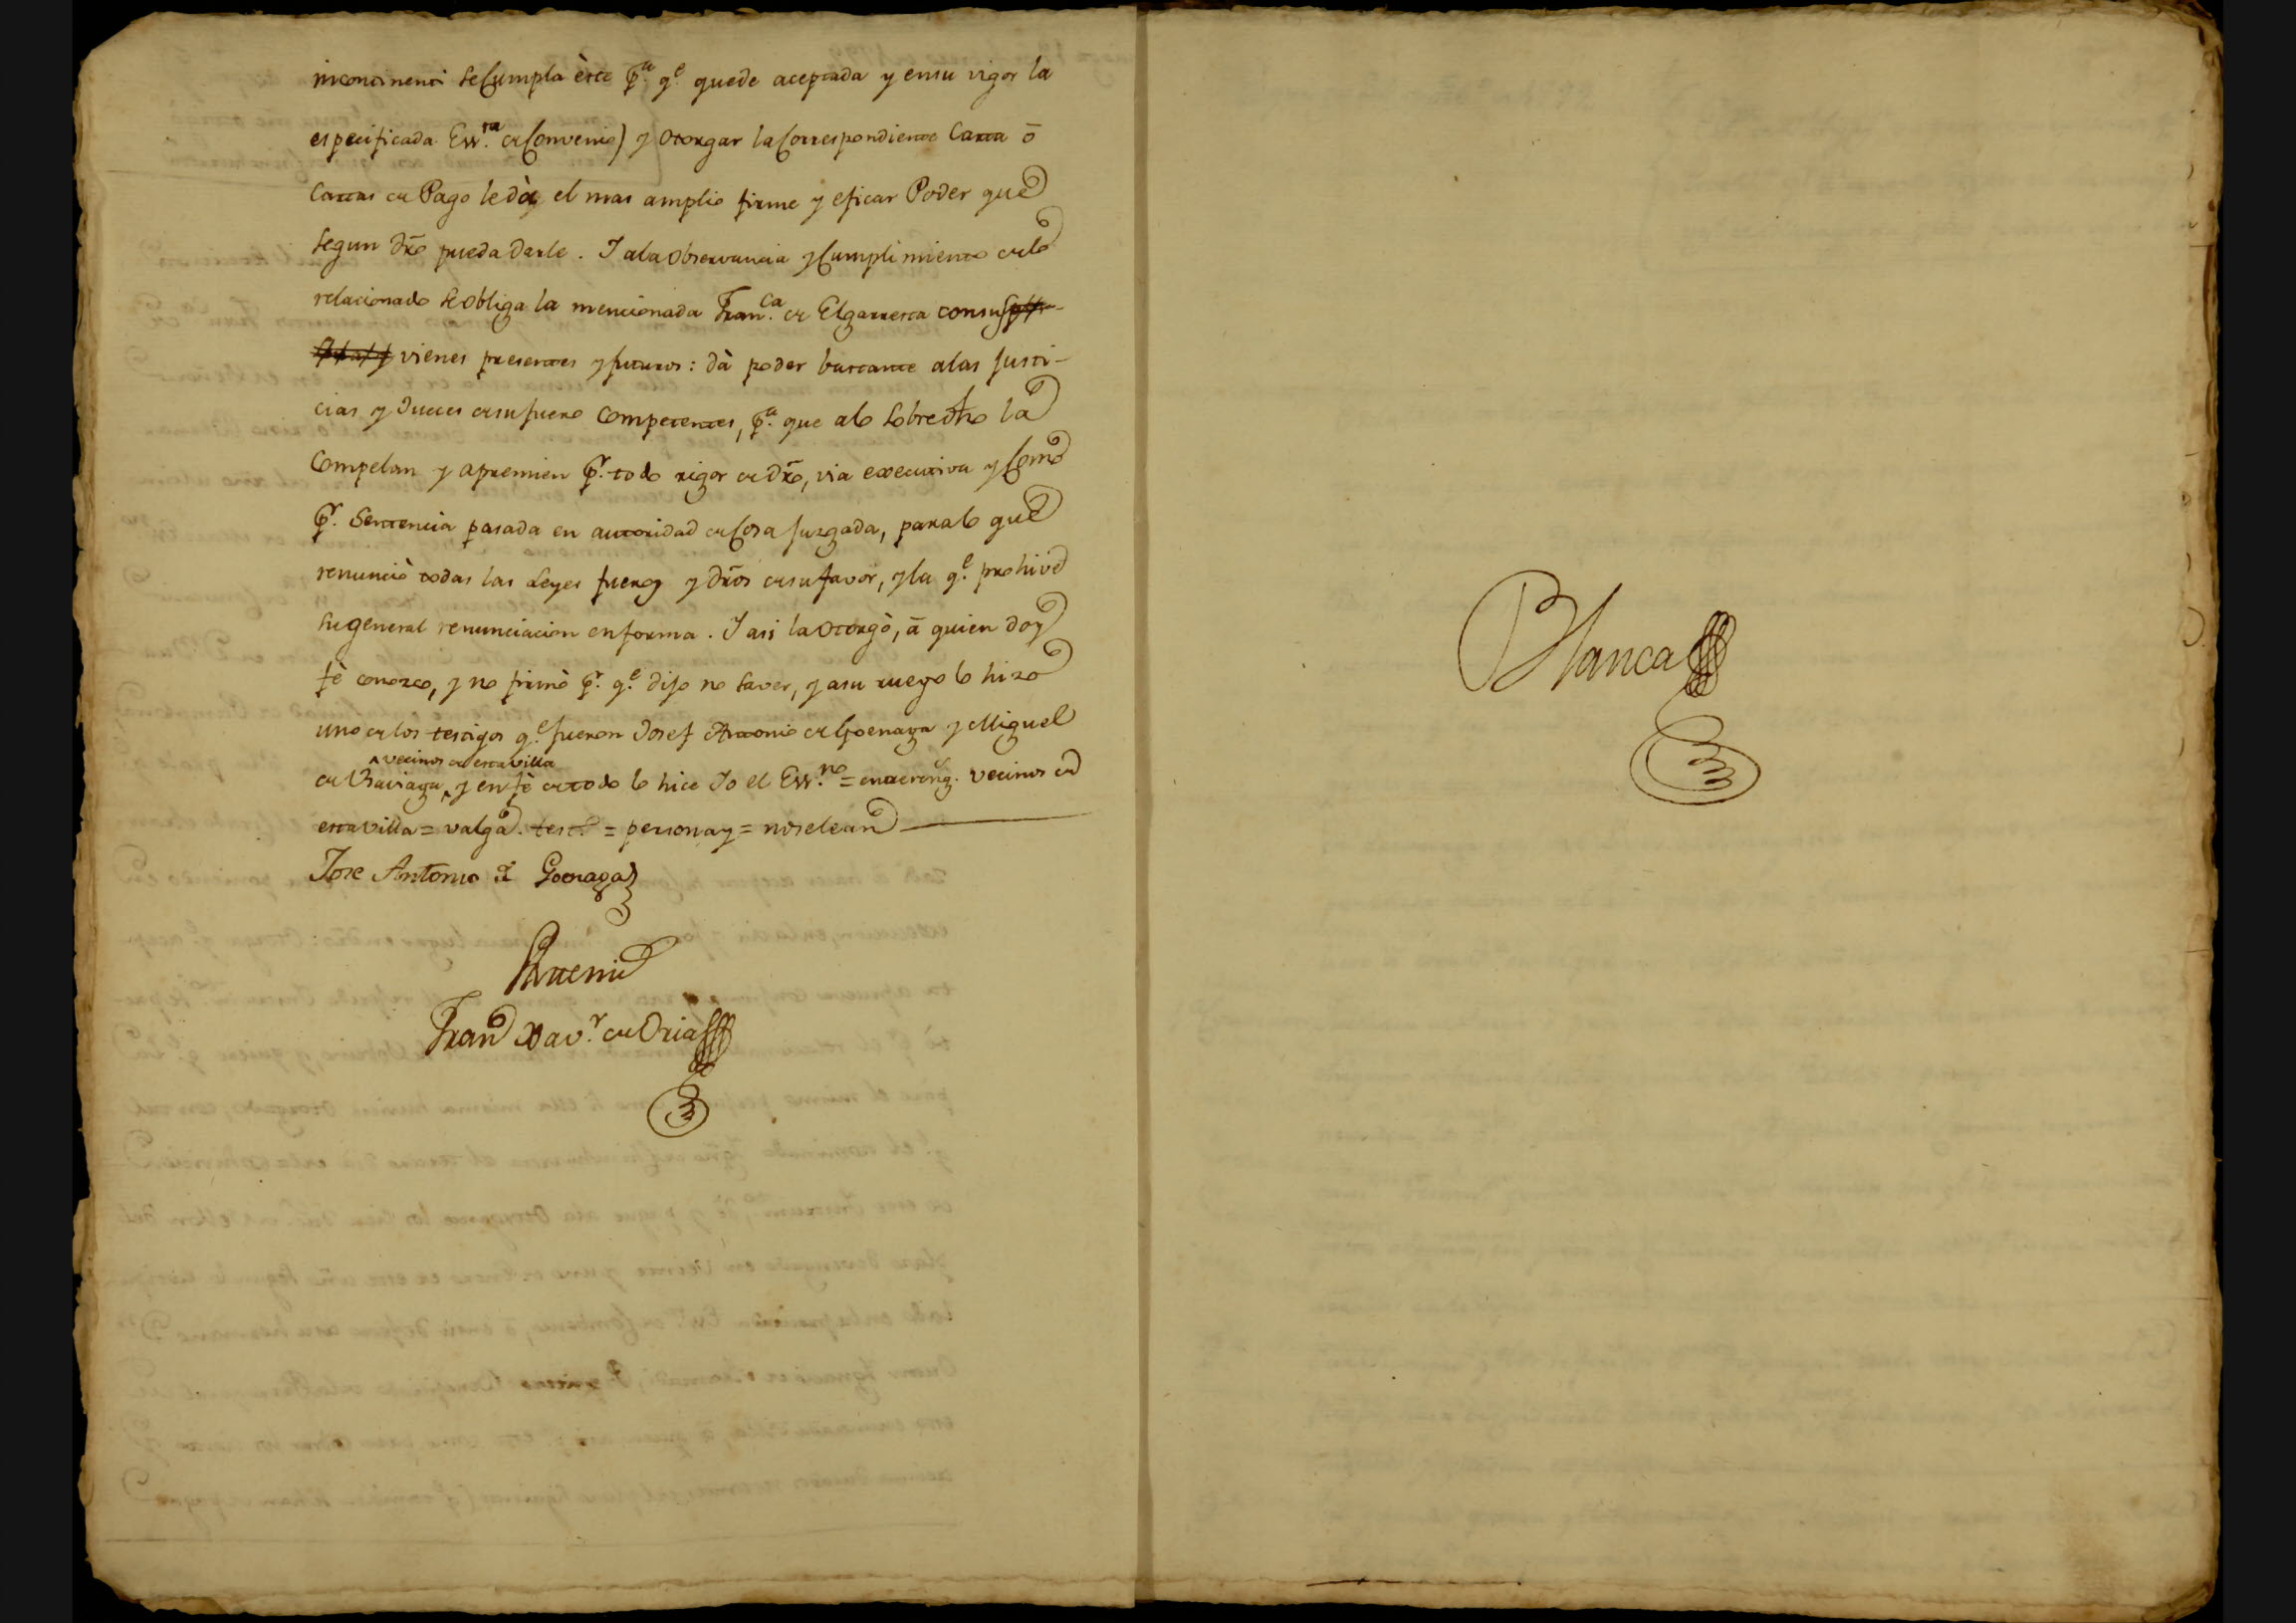 incontinenti se Cumpla èste p.ª q.e quede aceptada y en su vigor la
especificada Ess.ra de Convenio) y otorgar la Correspondiente Carta ô
Cartas de Pago le dà el mas amplio firme y eficaz Poder que
segun dro pueda darle. I ala observancia y Cumplimiento de lo
relacionado se obliga la mencionada Fran.ca de Elgarresta con sus
vienes presentes y futuros: dà poder bastante alas Justi-
cias y Jueces de su fuero Competentes, p.ª que alo sobredho la
Compelan y apremien p.r todo rigor de dro, via executiva y Como
p.r Sentencia pasada en autoridad de Cosa juzgada, para lo que
renunciò todas las Leyes fueros y dros de su favor, y la q.e prohive
su general renunciacion en forma. I asi la otorgò, â quien doy
fè conozco, y no firmò p.r q.e dijo no saver, y a su ruego lo hizo
uno de los testigos q.e fueron Josef Antonio de Goenaga y Miguel
vecinos de esta villa
de y en fè de todo lo hice Yo el Ess.no = entrereng. vecinos de
esta villa = valga. test.do = personas y = no se lean
Jose Antonio de Goenaga
Antemi
Fran.co Xav.r de Oria
Blanca